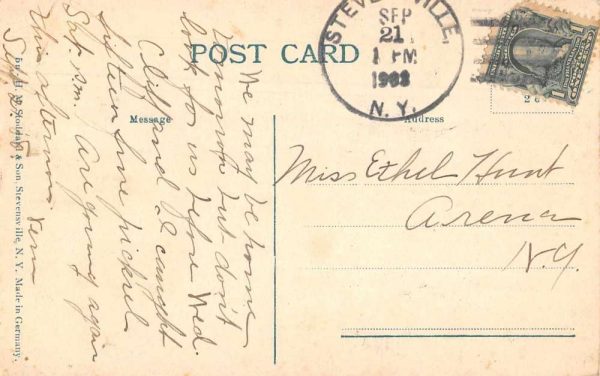 POST CARD
STEVENSVILLE,
SEP
21
1 PM
1908
N. Y.
Message
Address
We may be home
tomorrow but don't
look for us before Wed.
Cliff and I caught
fifteen fine pickerel
Sat. P.M. Are going again
this afternoon. Vern
Sept. 21
Miss Ethel Hunt
Arena
N.Y.
Stoddard & Son, Stevensville, N. Y. Made in Germany.